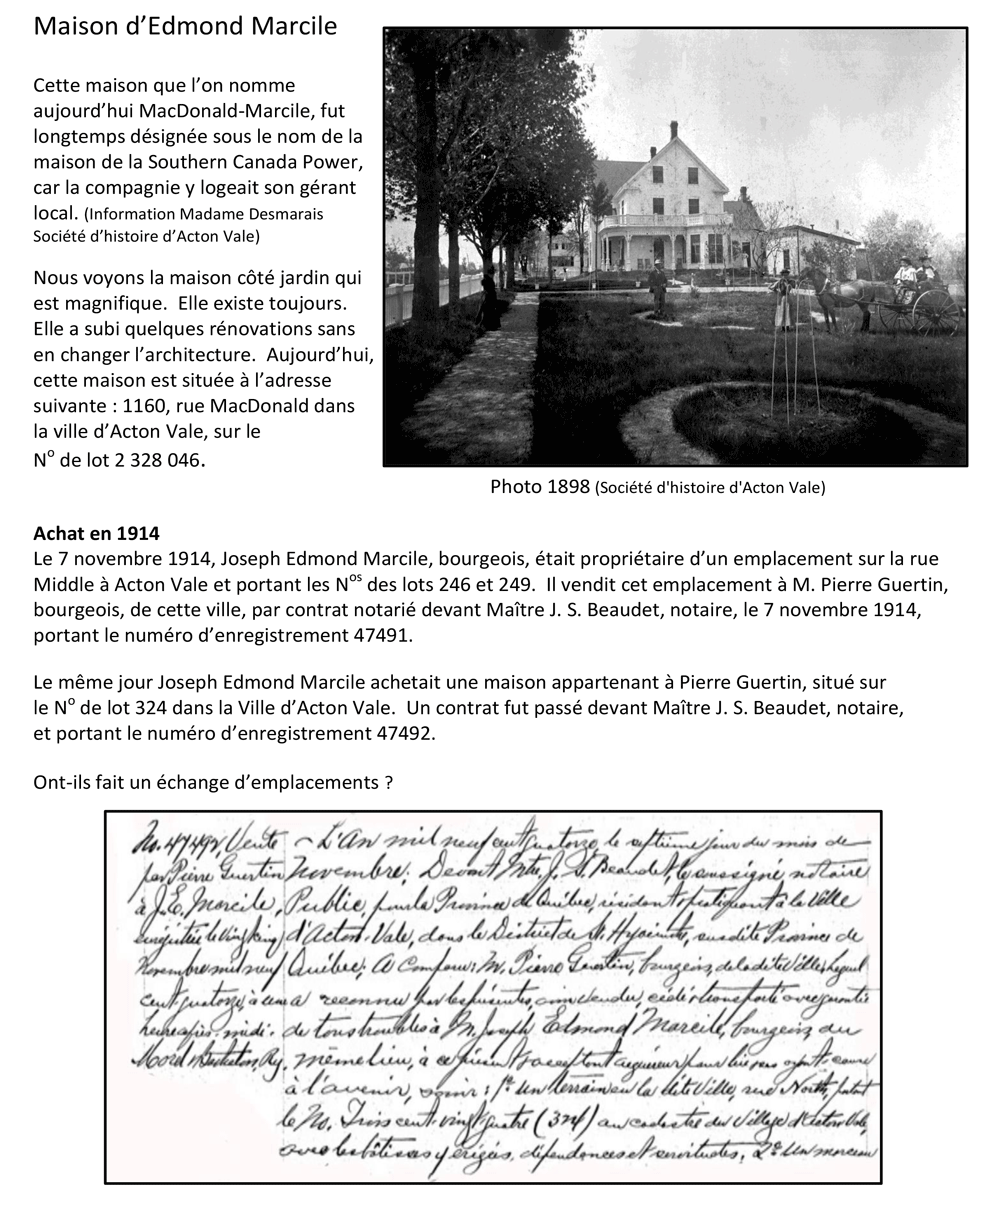 Maison d’Edmond Marcile
Cette maison que l’on nomme
aujourd’hui MacDonald-Marcile, fut
longtemps désignée sous le nom de la
maison de la Southern Canada Power,
car la compagnie y logeait son gérant
local. (Information Madame Desmarais
Société d’histoire d’Acton Vale)
Nous voyons la maison côté jardin qui
est magnifique. Elle existe toujours.
Elle a subi quelques rénovations sans
en changer l’architecture. Aujourd’hui,
cette maison est située à l’adresse
suivante : 1160, rue MacDonald dans
la ville d’Acton Vale, sur le
Nº de lot 2 328 046.
Photo 1898 (Société d'histoire d'Acton Vale)
Achat en 1914
Le 7 novembre 1914, Joseph Edmond Marcile, bourgeois, était propriétaire d’un emplacement sur la rue
Middle à Acton Vale et portant les Nos des lots 246 et 249. Il vendit cet emplacement à M. Pierre Guertin,
bourgeois, de cette ville, par contrat notarié devant Maître J. S. Beaudet, notaire, le 7 novembre 1914,
portant le numéro d’enregistrement 47491.
Le même jour Joseph Edmond Marcile achetait une maison appartenant à Pierre Guertin, situé sur
le Nº de lot 324 dans la Ville d’Acton Vale. Un contrat fut passé devant Maître J. S. Beaudet, notaire,
et portant le numéro d’enregistrement 47492.
Ont-ils fait un échange d’emplacements ?
No. 47492, Vente
par Pierre Guertin
à J. E. Marcile,
enrégistrée le
Novembre mil neuf
cent quatorze, à
heure après-midi.
L'An mil neuf cent quatorze, le septième jour du mois de
Novembre; Devant Mtre. J. S. Beaudet, le soussigné notaire
Public, pour la Province de Québec, résidant & pratiquant à la Ville
d'Acton-Vale, dans le District de St. Hyacinthe, susdite Province de
Québec; A Comparu: M. Pierre Guertin, bourgeois, de la dite Ville, lequel
a reconnu par les présentes, avoir vendu, cédé & transporté avec garantie
de tous troubles à M. Joseph Edmond Marcile, bourgeois, du
même lieu, à ce présent & acceptant acquéreur pour lui ses ayants cause
à l'avenir, savoir: 1º Un terrain en la dite Ville, rue North, portant
le No. Trois cent vingt quatre (324) au cadastre du Village d'Acton Vale,
avec les bâtisses y érigées, dépendances et servitudes; 2º Un morceau